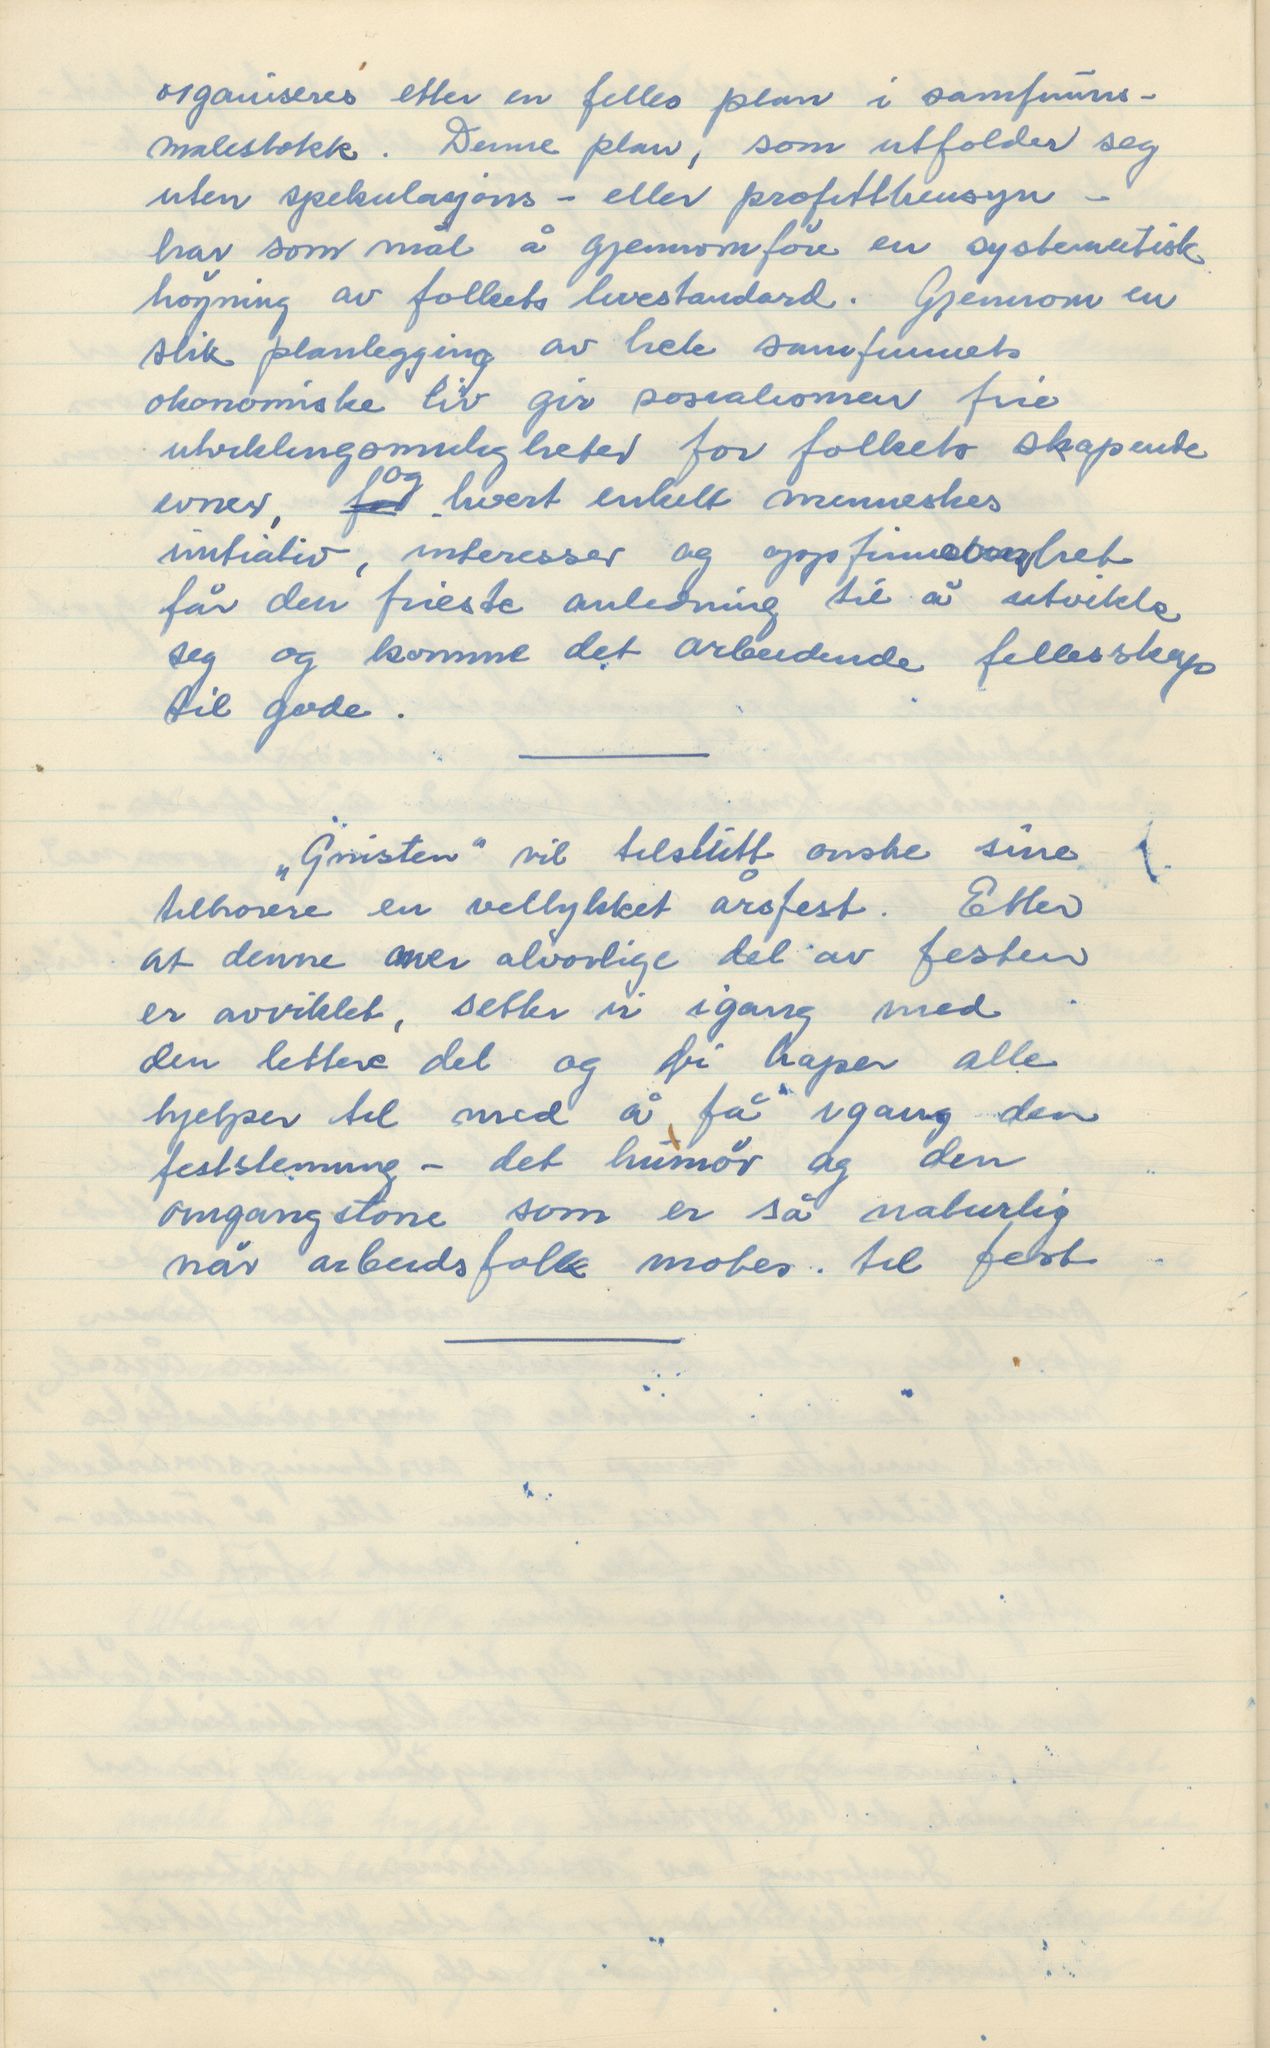 organiseres etter en felles plan i samfunns-
malestokk. Denne plan, som utfolder seg
uten spekulasjons - eller profitthensyn -
har som mål å gjennomföre en systematisk
höyning av folkets livestandard. Gjennom en
slik planlegging av hele samfunnets
okonomiske liv gir sosialismen frie
utviklingsmuligheter for folkets skapende
evner, for og hvert enkelt menneskes
initiativ, interesser og oppfinnsomhet
får den frieste anledning til å utvikle
seg og komme det arbeidende fellesskap
til gode.
„Gnisten" vil tilslutt onske sine
tilhorere en vellykket årsfest. Etter
at denne mer alvorlige del av festen
er avviklet, setter vi igang med
den lettere del og vi haper alle
hjelper til med å få igang den
feststemning - det humör og den
omgangstone som er så naturlig
når arbeidsfolk motes. til fest